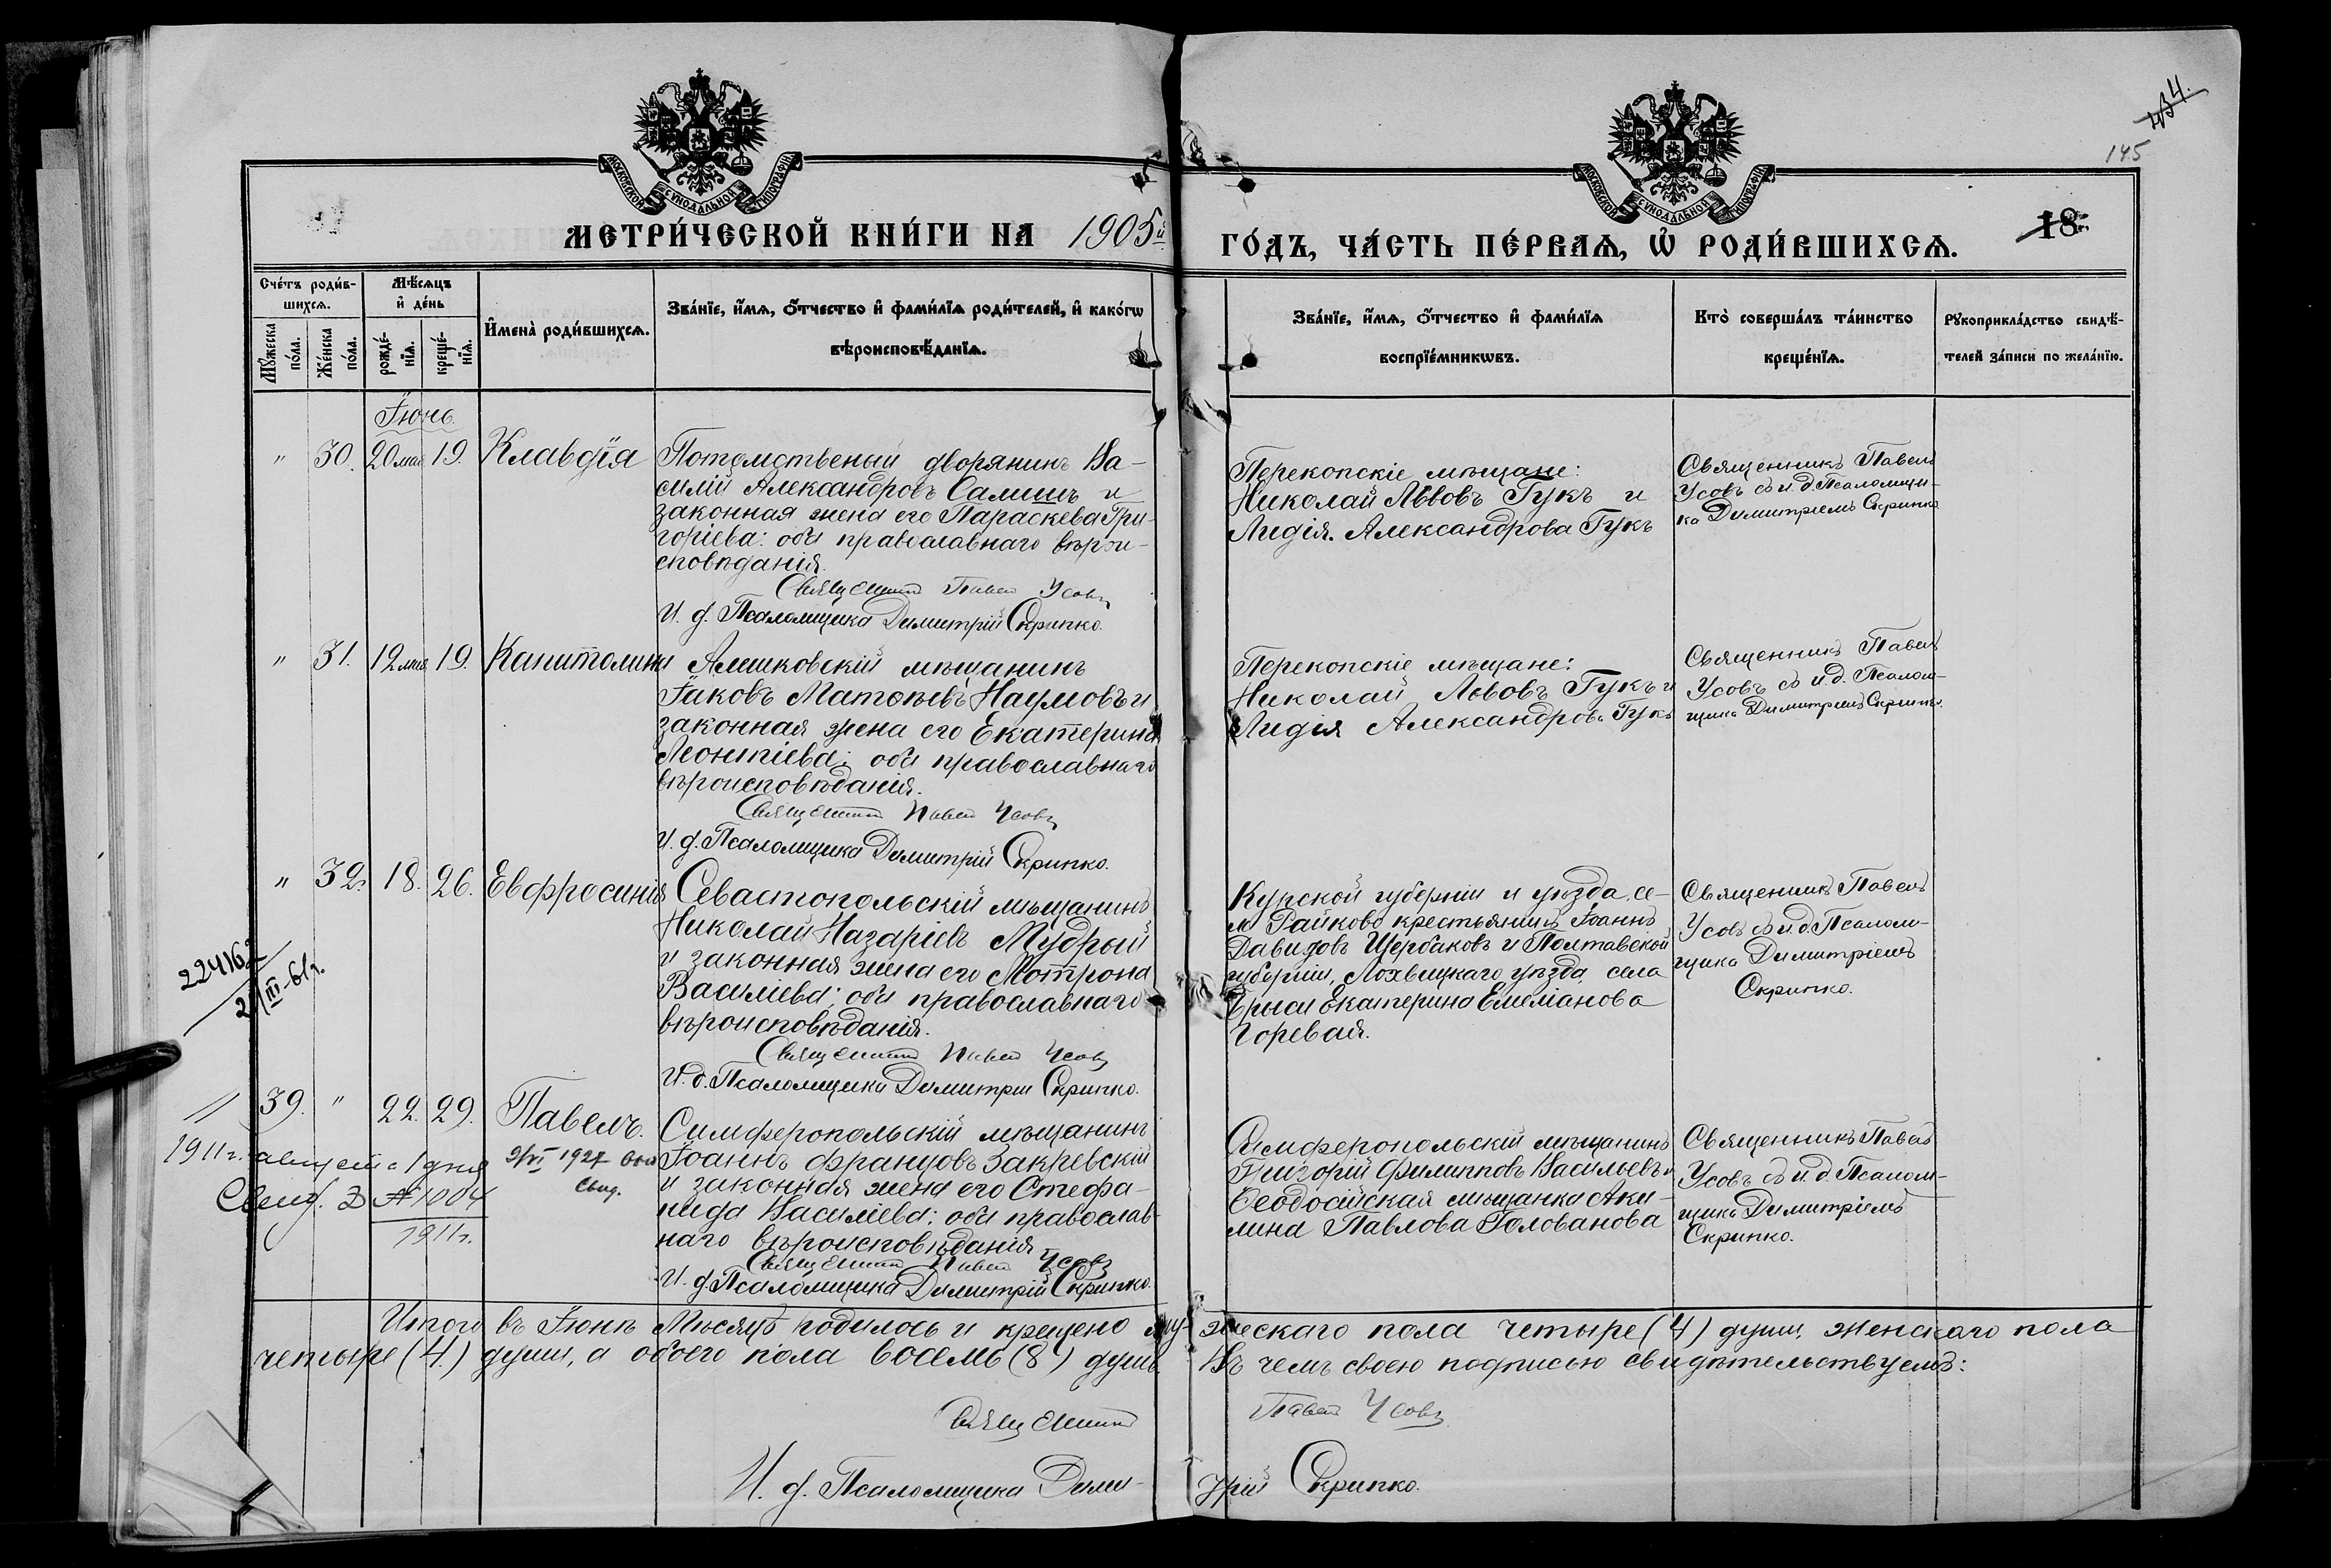 134.
145
МОСКОВСКОЙ СѴНОДАЛЬНОЙ ТИПОГРАФІИ
МОСКОВСКОЙ СѴНОДАЛЬНОЙ ТИПОГРАФІИ
МЕТРИ́ЧЕСКОЙ КНИ́ГИ НА 1905й
ГО́ДЪ, ЧА́СТЬ ПЕ́РВАѦ, Ѡ҆ РОДИ́ВШИХСѦ.
18
Сче́тъ роди́в-
шихсѧ.
Мꙋ́жеска
по́ла.
Же́нска
по́ла.
Мѣ́сѧцъ
и҆ де́нь
рожде́-
нїѧ.
креще́-
нїѧ.
И҆мена̀ роди́вшихсѧ.
Зва́нїе, и҆́мѧ, ѻ҆́тчество и҆ фами́лїѧ роди́телей, и҆ како́гѡ
вѣроисповѣ́данїѧ.
Зва́нїе, и҆́мѧ, ѻ҆́тчество и҆ фами́лїѧ
воспрїе́мникѡвъ.
Кто̀ соверша́лъ та́инство
креще́нїѧ.
Рꙋкоприкла́дство свидѣ́-
телей за́писи по жела́нїю.
Іюнь.
" 30. 20 мая 19. Клавдія
Потомственый дворянинъ Ва-
силій Александровъ Салишъ и
законная жена его Параскева Гри-
горіева: оба православнаго вѣрои-
сповѣданія.
Священникъ Павелъ Усовъ
И. д. Псаломщика Димитрій Скрипко.
Перекопскіе мѣщане:
Николай Львовъ Гукъ и
Лидія Александрова Гукъ
Священникъ Павелъ
Усовъ съ и. д. Псаломщи-
ка Димитріемъ Скрипко
" 31. 12 мая 19. Капитолина
Алешковскій мѣщанинъ
Іаковъ Матѳѣевъ Наумовъ и
законная жена его Екатерина
Леонтіева: оба православнаго
вѣроисповѣданія.
Священникъ Павелъ Усовъ
И. д. Псаломщика Димитрій Скрипко.
Перекопскіе мѣщане:
Николай Львовъ Гукъ и
Лидія Александрова Гукъ
Священникъ Павелъ
Усовъ съ и. д. Псалом-
щика Димитріемъ Скрипко.
" 32. 18. 26. Евфросинія
Севастопольскій мѣщанинъ
Николай Назаріевъ Мудрый
и законная жена его Мотрона
Василіева: оба православнаго
вѣроисповѣданія.
Священникъ Павелъ Усовъ
И. д. Псаломщика Димитрій Скрипко.
Курской губерніи и уѣзда, се-
ла Райково крестьянинъ Іоаннъ
Давидовъ Щербаковъ и Полтавской
губерніи, Лохвицкаго уѣзда, села
Брыси Екатерина Емеліанова
Горевая.
Священникъ Павелъ
Усовъ съ и. д. Псалом-
щика Димитріемъ
Скрипко.
39. " 22. 29. Павелъ.
1911 г. августа 1 дня
Свид. № 1004
1911 г.
9/VI 1927
свид.
Симферопольскій мѣщанинъ
Іоаннъ Францовъ Закревскій
и законная жена его Стефа-
нида Василіева: оба православ-
наго вѣроисповѣданія
Священникъ Павелъ Усовъ
И. д. Псаломщика Димитрій Скрипко.
Симферопольскій мѣщанинъ
Григорій Филипповъ Васильевъ и
Ѳеодосійская мѣщанка Аки-
лина Павлова Голованова
Священникъ Павелъ
Усовъ съ и. д. Псалом-
щика Димитріемъ
Скрипко.
Итого въ Іюнѣ Мѣсяцѣ родилось и крещено му- жескаго пола четыре (4) души, женскаго пола
четыре (4.) души, а обоего пола восемь (8) душъ. Въ чемъ своею подписью свидѣтельствуемъ:
Священникъ Павелъ Усовъ
И. д. Псаломщика Дими- трій Скрипко.